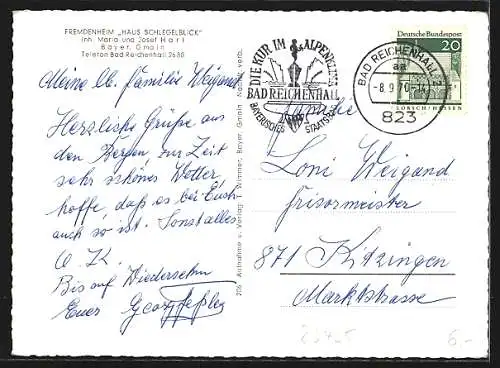 FREMDENHEIM „HAUS SCHLEGELBLICK"
Inh. Maria und Josef Hartl
Bayer. Gmain
Telefon Bad Reichenhall 2630
Meine lb. Familie Weigand
Herzliche Grüße aus
den Bergen zur Zeit
sehr schönes Wetter,
hoffe, daß es bei Euch
auch so ist. Sonst alles
O. K.
Bis auf Wiedersehn
Euer Georg
206 Aufnahme u. Verlag: Wimmer, Bayer. Gmain Nachdr. verb.
DIE KUR IM ALPENKLIMA
BAD REICHENHALL
BAYERISCHES STAATSBAD
BAD REICHENHALL
aa
-8.9.70-
823
Deutsche Bundespost
20
LORSCH/HESSEN
Familie
Loni Weigand
Frisormeister
871 Kitzingen
Marktstrasse
6,-